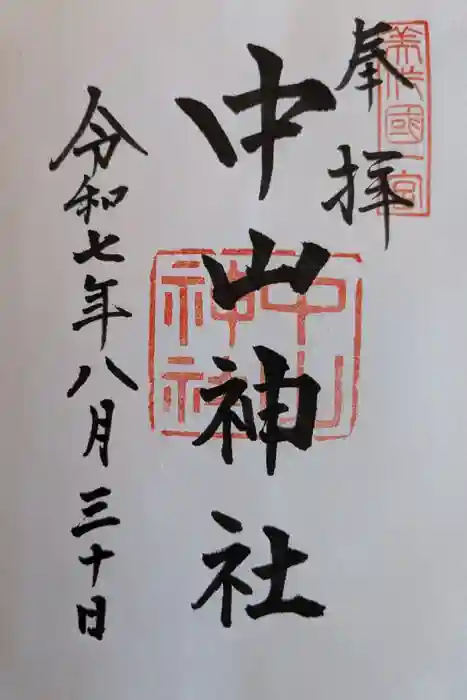 奉拝
美作國一宮
中山神社
中山神社
令和七年八月三十日